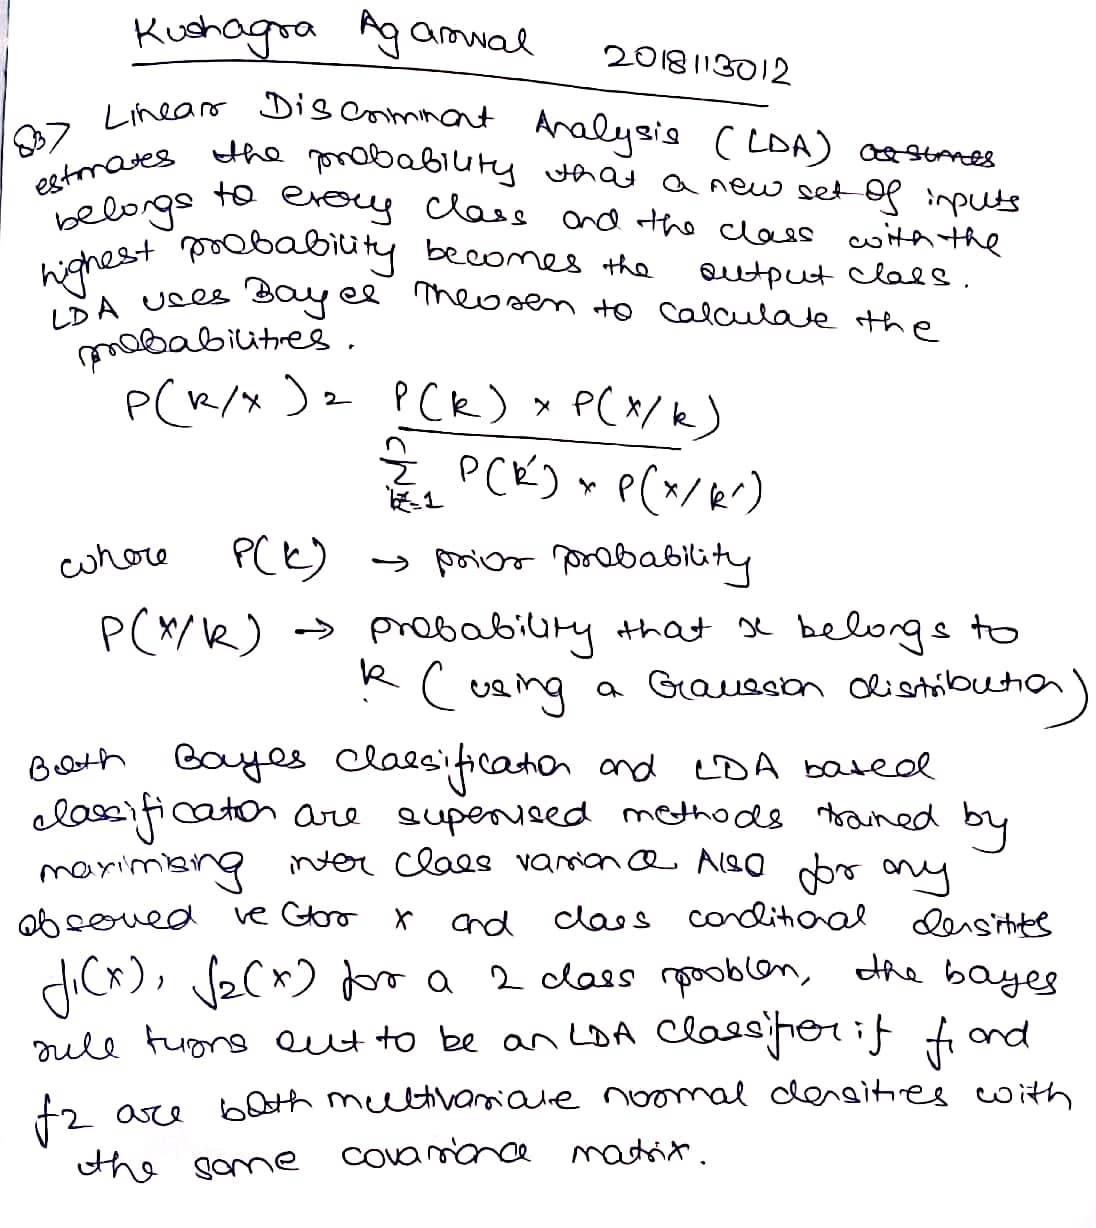 Kushagra Agarwal 2018113012
Q3> Linear Discriminant Analysis (LDA) assumes
estimates the probability that a new set of inputs
belongs to every class and the class with the
highest probability becomes the output class.
LDA uses Bayes Theorem to calculate the
probabilities.
P(k/x) = P(k) × P(x/k)
n
Σ P(k') × P(x/k')
k'=1
where P(k) → prior probability
P(x/k) → probability that x belongs to
k (using a Gaussian distribution)
Both Bayes classification and LDA based
classification are supervised methods trained by
maximising inter class variance Also for any
observed vector x and class conditional densities
f1(x), f2(x) for a 2 class problem, the bayes
rule turns out to be an LDA classifier if f1 and
f2 are both multivariate normal densities with
the same covariance matrix.